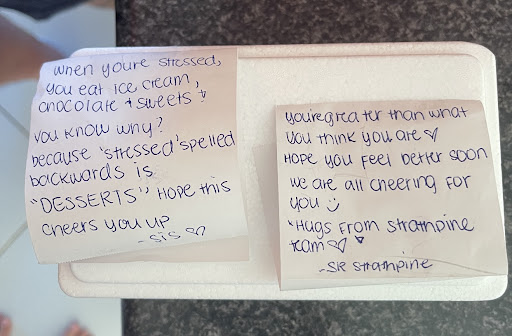 when youre stressed,
you eat ice cream,
chocolate + sweets
you know why?
because 'stressed' spelled
backwards is
"DESSERTS" Hope this
cheers you up
- sis ♡
you're greater than what
you think you are ♡
HOPE you feel better soon
we are all cheering for
you :)
"Hugs From strathpine
team ♡
- SR strathpine